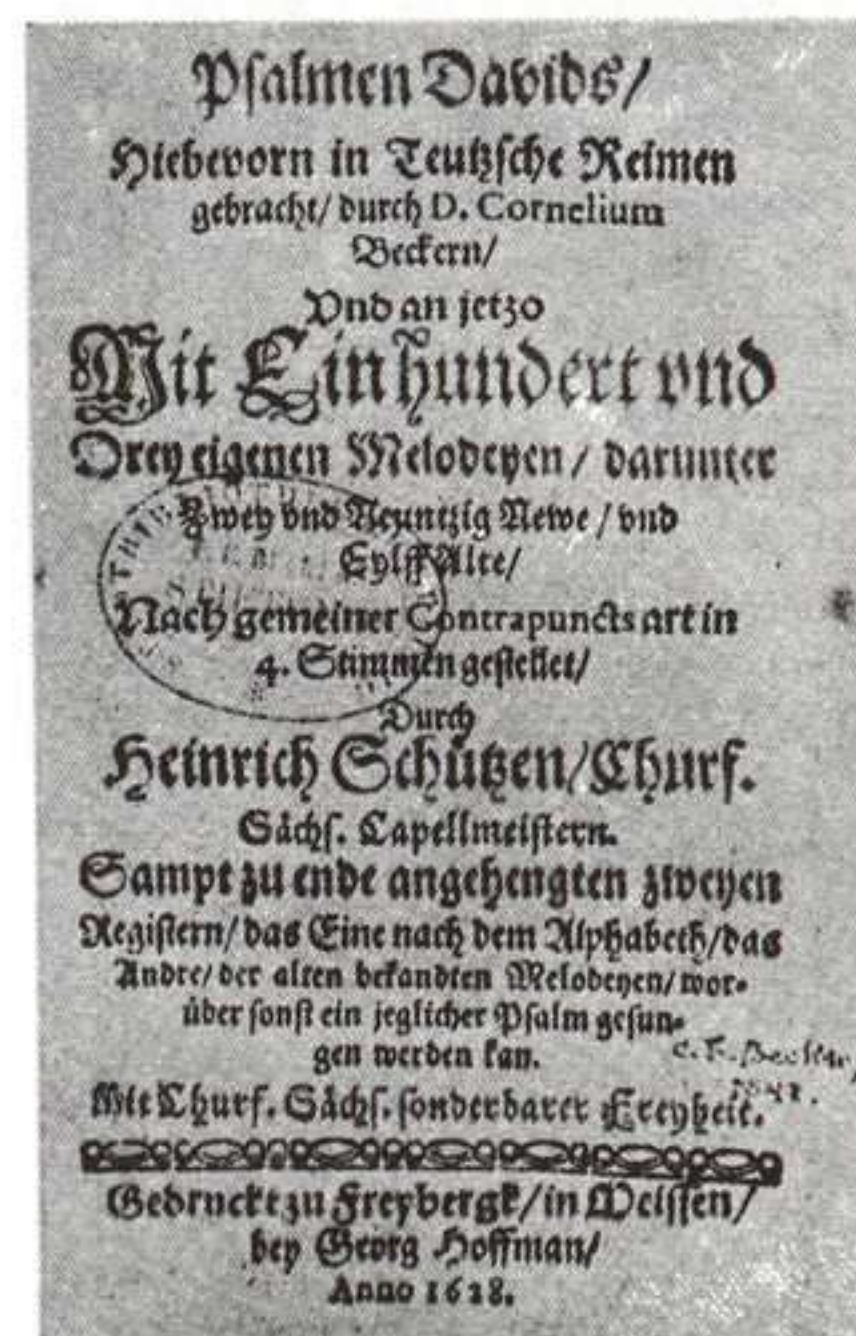 Psalmen Davids/
Hiebevorn in Teutzsche Reimen
gebracht/ durch D. Cornelium
Beckern/
Vnd an jetzo
Mit Ein hundert vnd
Drey eigenen Melodeyen/ darunter
Zwey vnd Neuntzig Newe/ vnd
Eylff Alte/
Nach gemeiner Contrapuncts art in
4. Stimmen gestellet/
Durch
Heinrich Schützen/ Churf.
Sächs. Capellmeistern.
Sampt zu ende angehengten zweyen
Registern/ das Eine nach dem Alphabeth/ das
Andre/ der alten bekandten Melodeyen/ wor-
über sonst ein jeglicher Psalm gesun-
gen werden kan.
Mit Churf. Sächs. sonderbarer Freyheit.
Gedruckt zu Freybergk/ in Meissen/
bey Georg Hoffman/
Anno 1628.